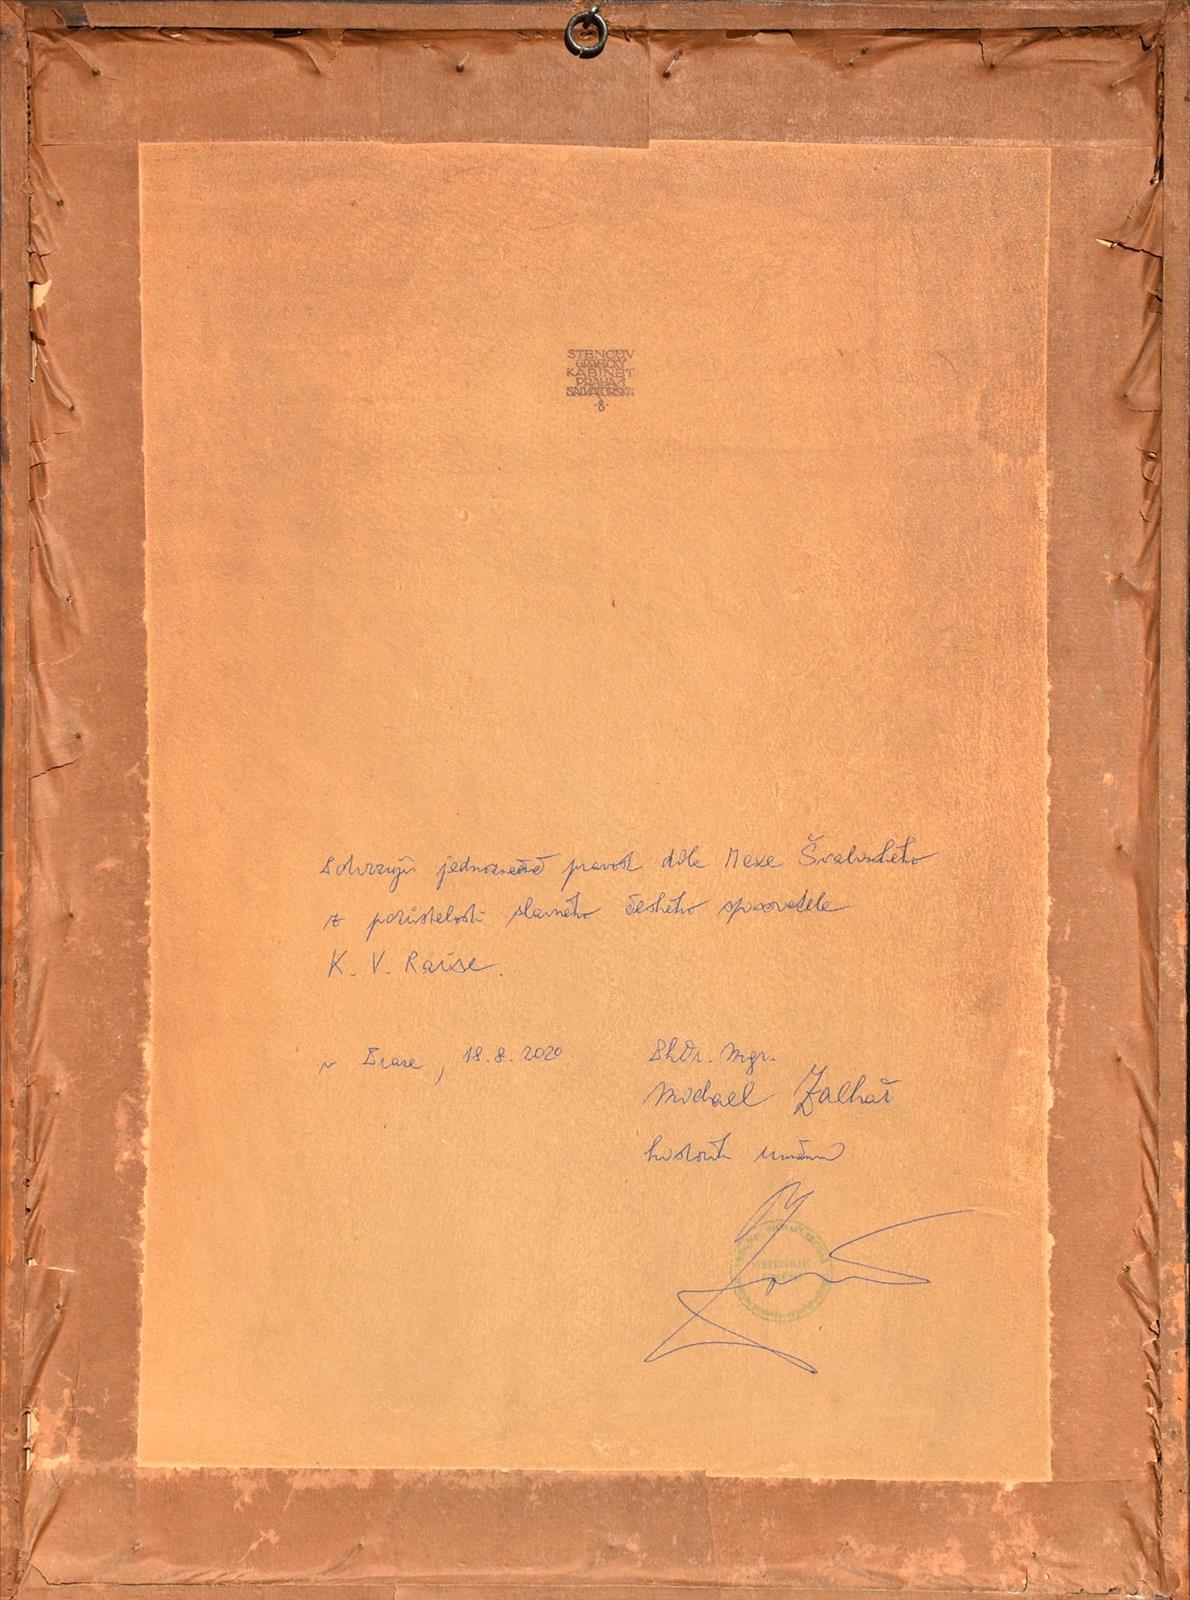 STENCŮV
GRAFICKÝ
KABINET
PRAHA I
SALVÁTORSKÁ
8
Potvrzuji jednoznačně pravost díla Maxe Švabinského
z pozůstalosti slavného českého spisovatele
K. V. Raise.
v Praze, 18.8.2020
PhDr. Mgr.
Michael Zachař
historik umění
HISTORIK